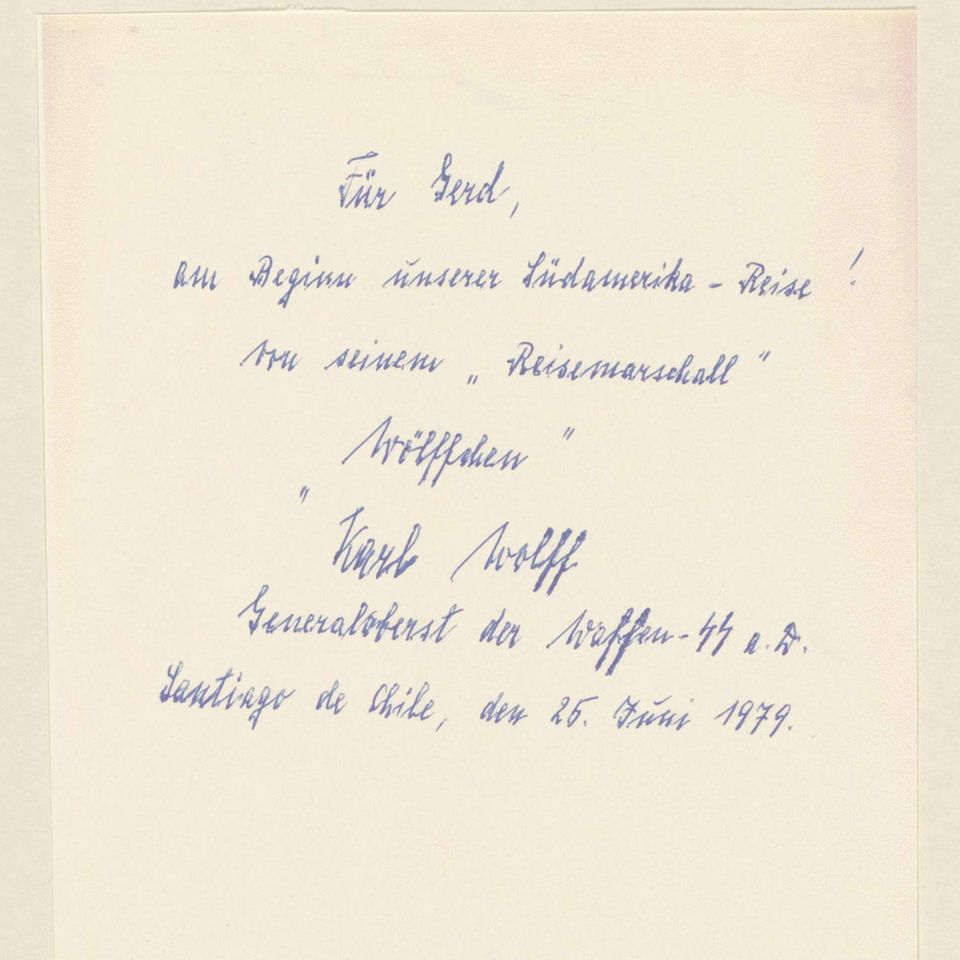 Für Gerd,
am Beginn unserer Südamerika-Reise!
von seinem „Reisemarschall"
„Wölffchen"
Karl Wolff
Generaloberst der Waffen-SS a.D.
Santiago de Chile, den 25. Juni 1979.